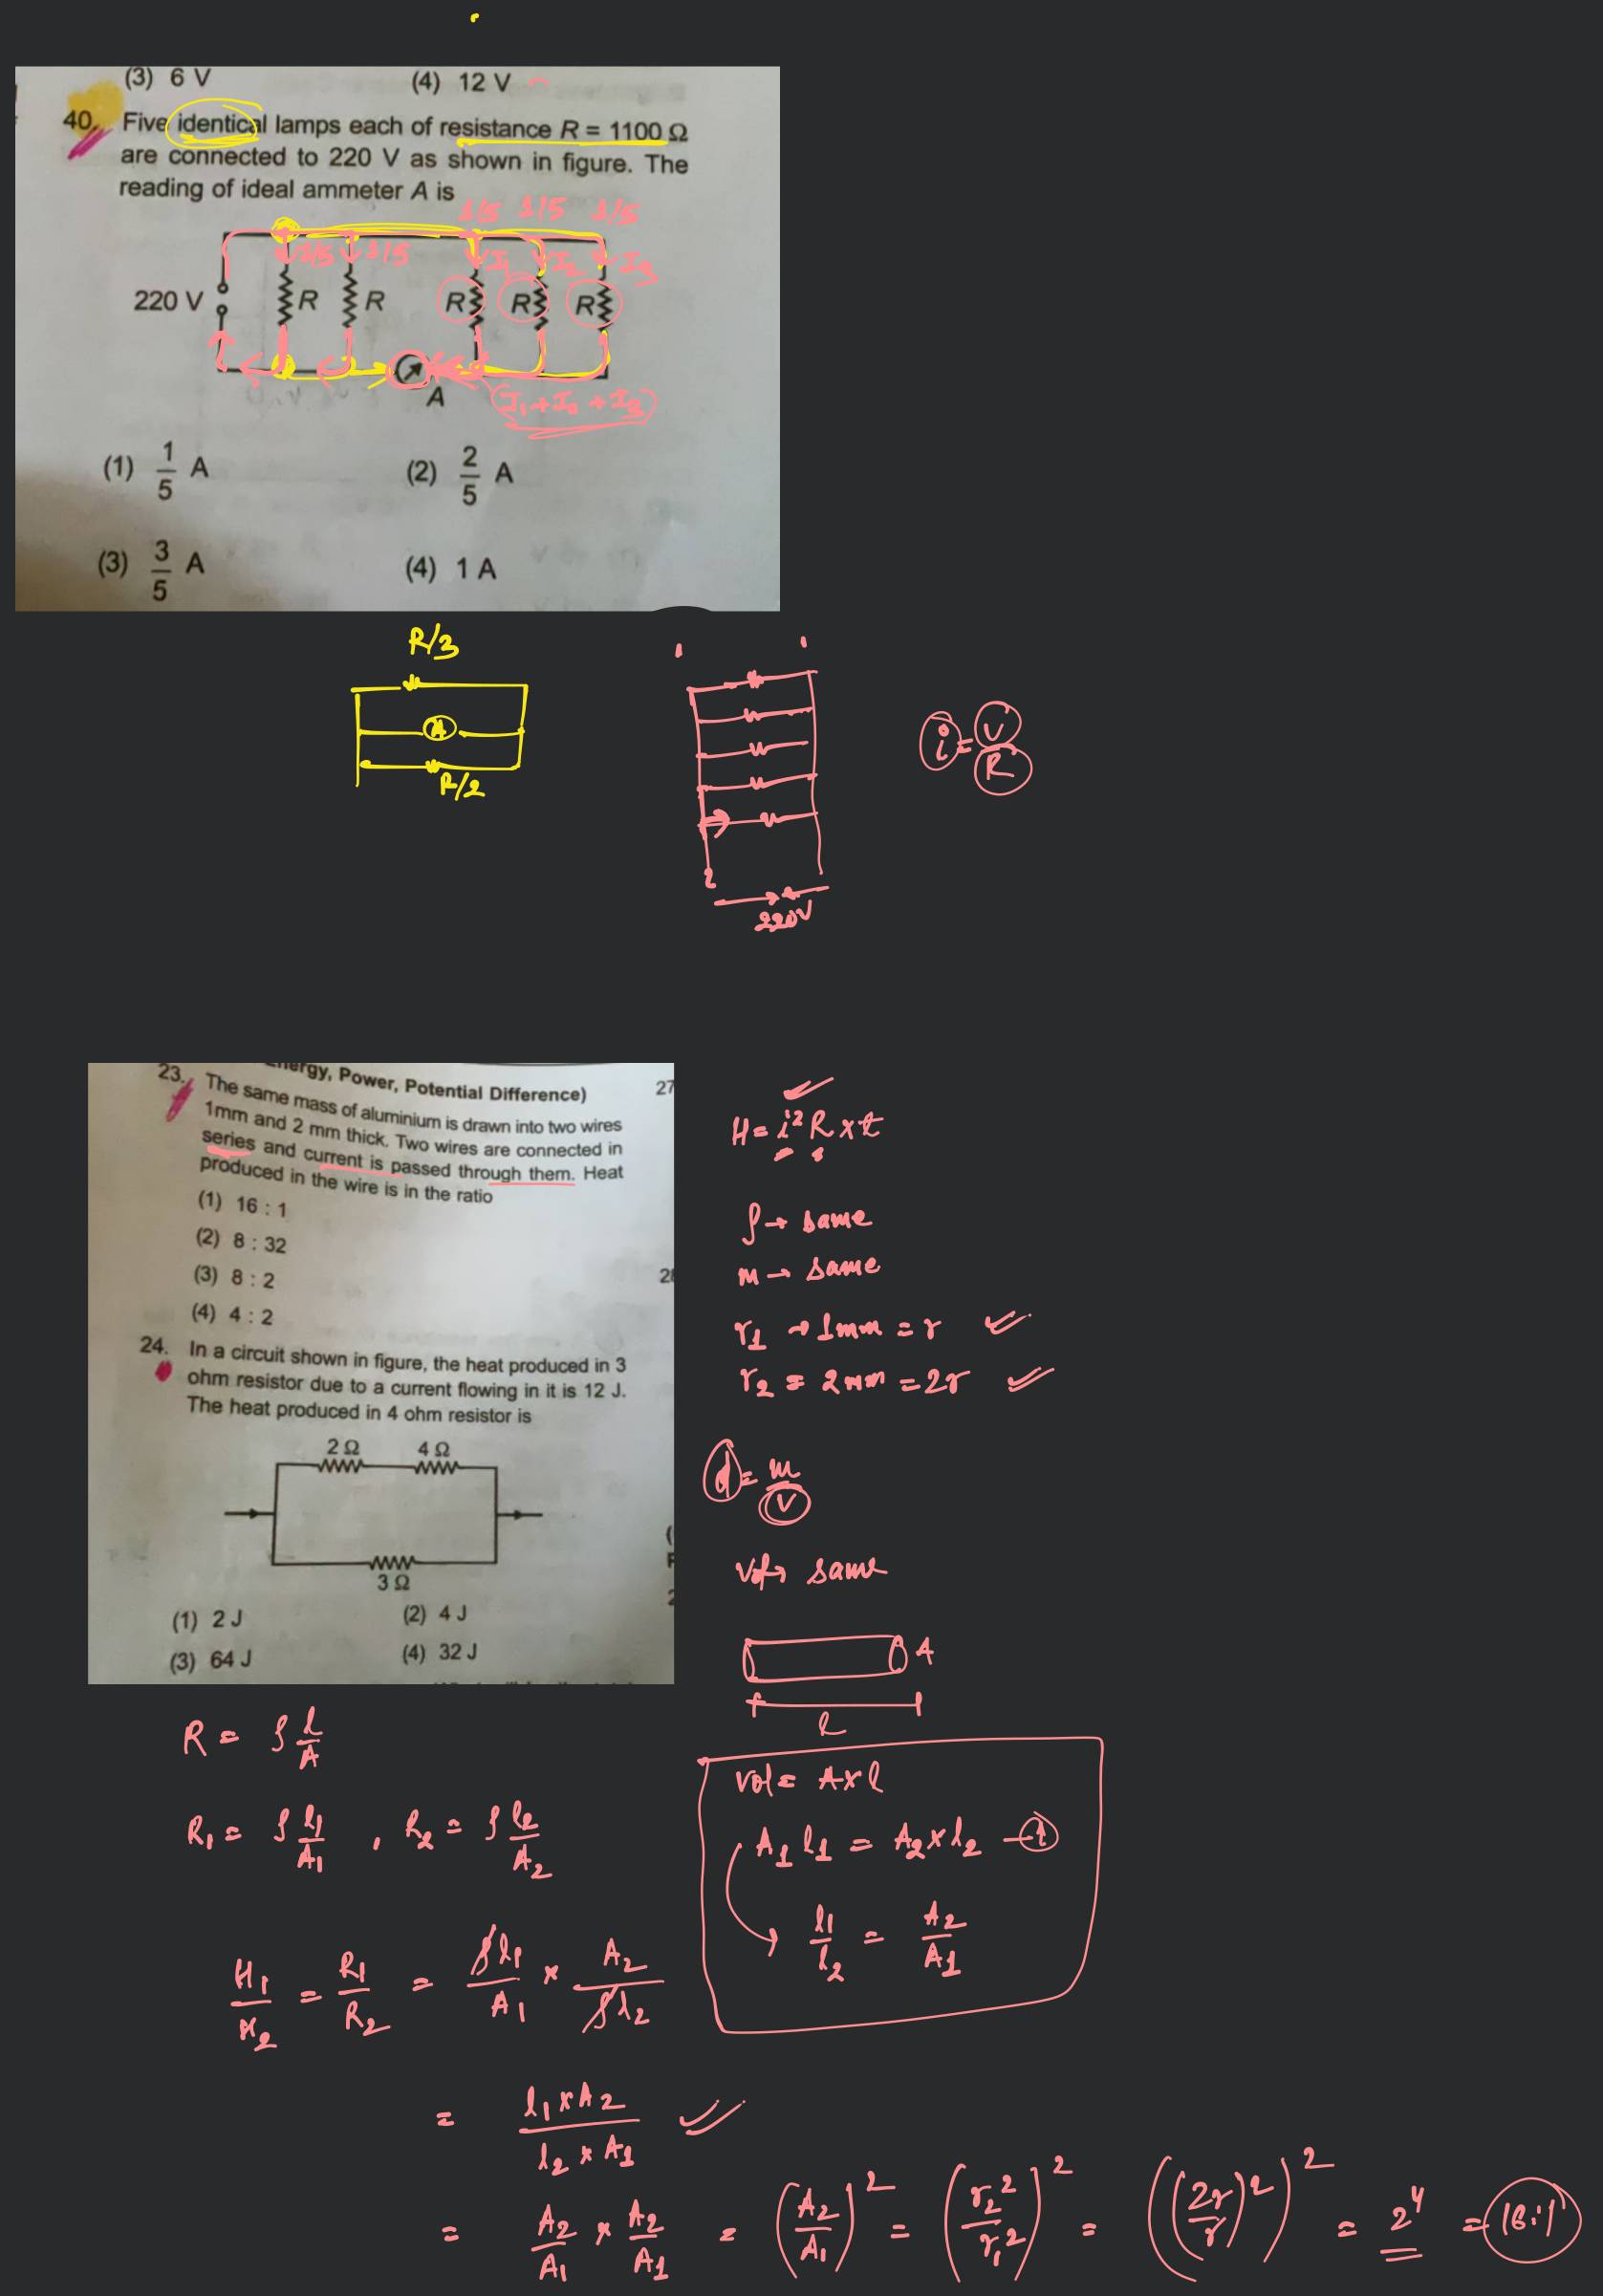 (3) 6 V (4) 12 V
40. Five identical lamps each of resistance R = 1100 Ω
are connected to 220 V as shown in figure. The
reading of ideal ammeter A is
1/5 1/5 1/5
1/5 1/5 I₁ I₂ I₃
220 V R R R R R
A I₁ + I₂ + I₃
(1) 1/5 A (2) 2/5 A
(3) 3/5 A (4) 1 A
R/3
A
R/2
i = V/R
220V
Energy, Power, Potential Difference)
23. The same mass of aluminium is drawn into two wires
1mm and 2 mm thick. Two wires are connected in
series and current is passed through them. Heat
produced in the wire is in the ratio
(1) 16 : 1
(2) 8 : 32
(3) 8 : 2
(4) 4 : 2
24. In a circuit shown in figure, the heat produced in 3
ohm resistor due to a current flowing in it is 12 J.
The heat produced in 4 ohm resistor is
2 Ω 4 Ω
3 Ω
(1) 2 J (2) 4 J
(3) 64 J (4) 32 J
27
H = i² R x t
ρ → same
m → same
r₁ → 1mm = r
r₂ = 2mm = 2r
d = m/V
Vol → same
A
l
R = ρ l/A
R₁ = ρ l₁/A₁ , R₂ = ρ l₂/A₂
Vol = A x l
A₁ l₁ = A₂ x l₂ — ①
l₁/l₂ = A₂/A₁
H₁/H₂ = R₁/R₂ = ρl₁/A₁ x A₂/ρl₂
= l₁ x A₂/l₂ x A₁
= A₂/A₁ x A₂/A₁ = (A₂/A₁)² = (r₂²/r₁²)² = ((2r/r)²)² = 2⁴ = 16:1